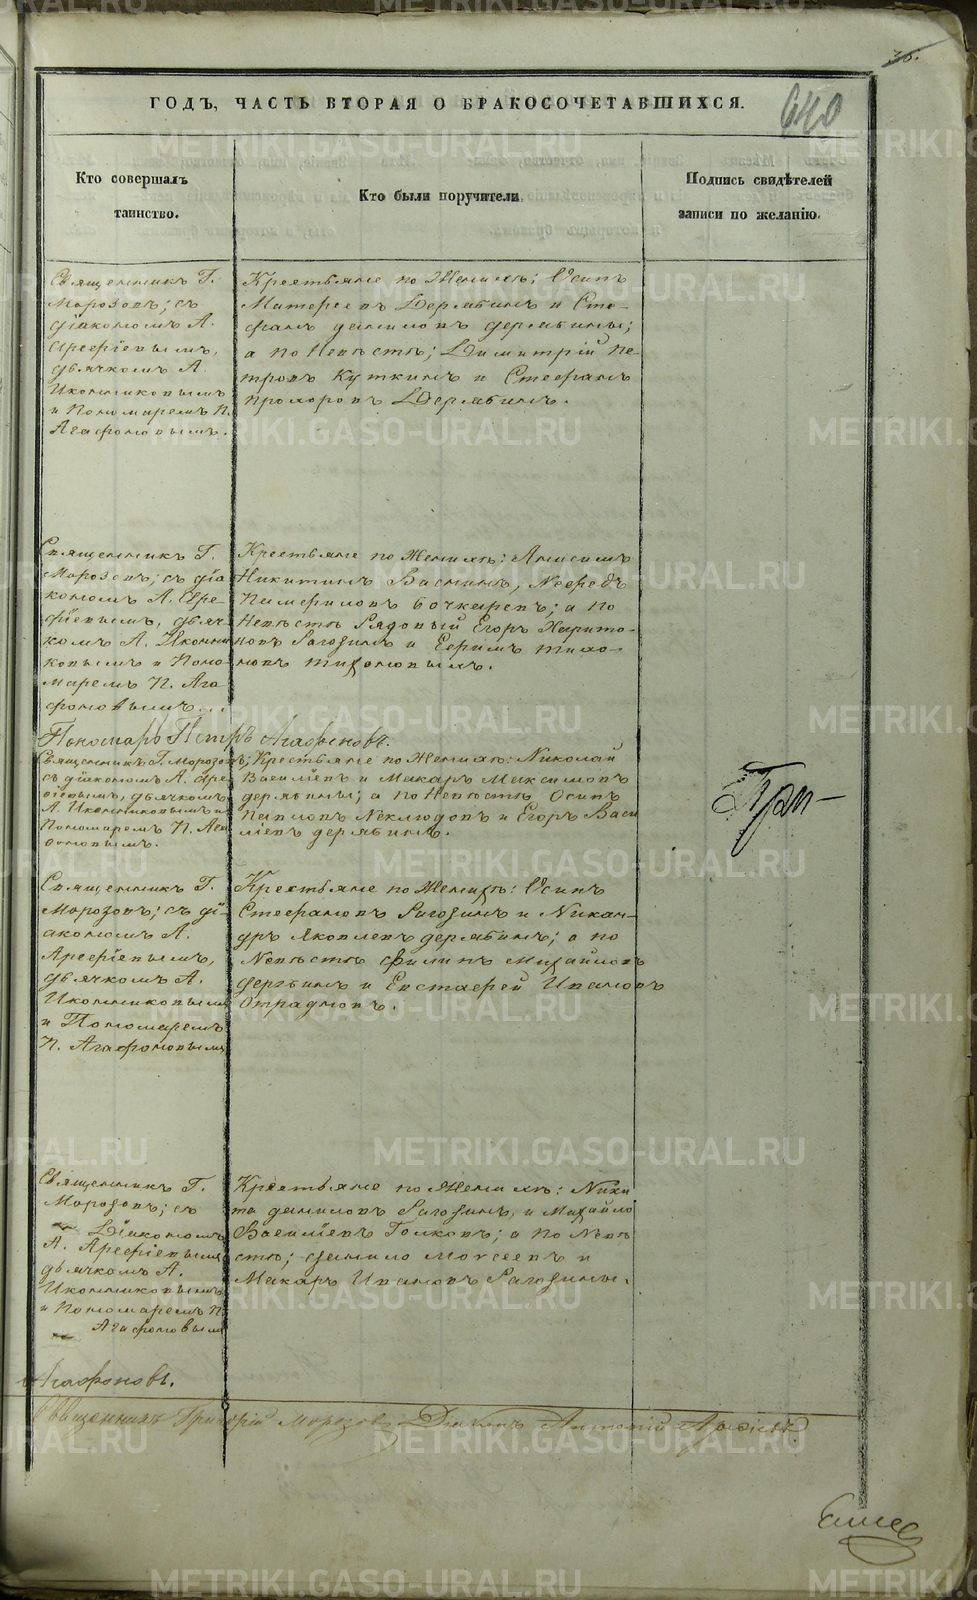 36.
ГОДЪ, ЧАСТЬ ВТОРАЯ О БРАКОСОЧЕТАВШИХСЯ.
640
Кто совершалъ
таинство.
Кто были поручители.
Подпись свидѣтелей
записи по желанію.
Священникъ Г.
Морозовъ; съ
діакономъ А.
Арефіевымъ,
дьячкомъ А.
Иконниковымъ
и Пономаремъ П.
Агафоновымъ.
Крестьяне по Женихѣ; Осипъ
Матѳеевъ Дерябинъ и Сте-
фанъ даниловъ дерябины;
а по Невѣстѣ; Димитрій Пе-
тровъ Куткинъ и Стефанъ
Прохоровъ Дерябинъ.
Священникъ Г.
Морозовъ; съ діа-
кономъ А. Аре-
фіевымъ, дьяч-
комъ А. Иконни-
ковымъ и Поно-
маремъ П. Ага-
фоновымъ...
Крестьяне по Женихѣ: Анисимъ
Никитинъ Васнинъ,
Памфиловъ Бочкаревъ; а по
Невѣстѣ Рядовый Егоръ Харито-
новъ Рагозинъ и Ефимъ тихо-
новъ тихоновымъ.
Пономарь Петръ Агафоновъ.
Священникъ Г. Морозовъ;
съ діакономъ А. Аре-
фіевымъ, дьячкомъ
А. Иконниковымъ и
Пономаремъ П. Ага
фоновымъ.
Крестьяне по Женихѣ: Николай
Васильевъ и Макаръ Максимовъ
дерябины; а по Невѣстѣ Осипъ
Павловъ Неклюдовъ и Егоръ Васи
ліевъ дерябинъ.
Священникъ Г.
Морозовъ; съ ді-
акономъ А.
Арефіевымъ,
дьячкомъ А.
Иконниковымъ
и Пономаремъ
П. Агафоновымъ
Крестьяне по Женихѣ: Осипъ
Стефановъ Рагозинъ и Никан-
дръ Яковлевъ дерябинъ; а по
Невѣстѣ филипъ Михайловъ
дерябинъ и Евстафей Ивановъ
Отрадновъ.
Священникъ Г.
Морозовъ; съ
Діакономъ
А. Арефіевымъ
дьячкомъ А.
Иконниковымъ
и Пономаремъ П.
Агафоновымъ
Крестьяне по Женихѣ: Ники
та даниловъ Рагозинъ, и Михайло
Васильевъ Голковъ; а по Невѣ
стѣ; данило Моисеевъ и
Макаръ Ивановъ Рагозины.
Агафоновъ.
Священникъ Григорій Морозовъ Діаконъ Антоній Арефіевъ
METRIKI.GASO-URAL.RU